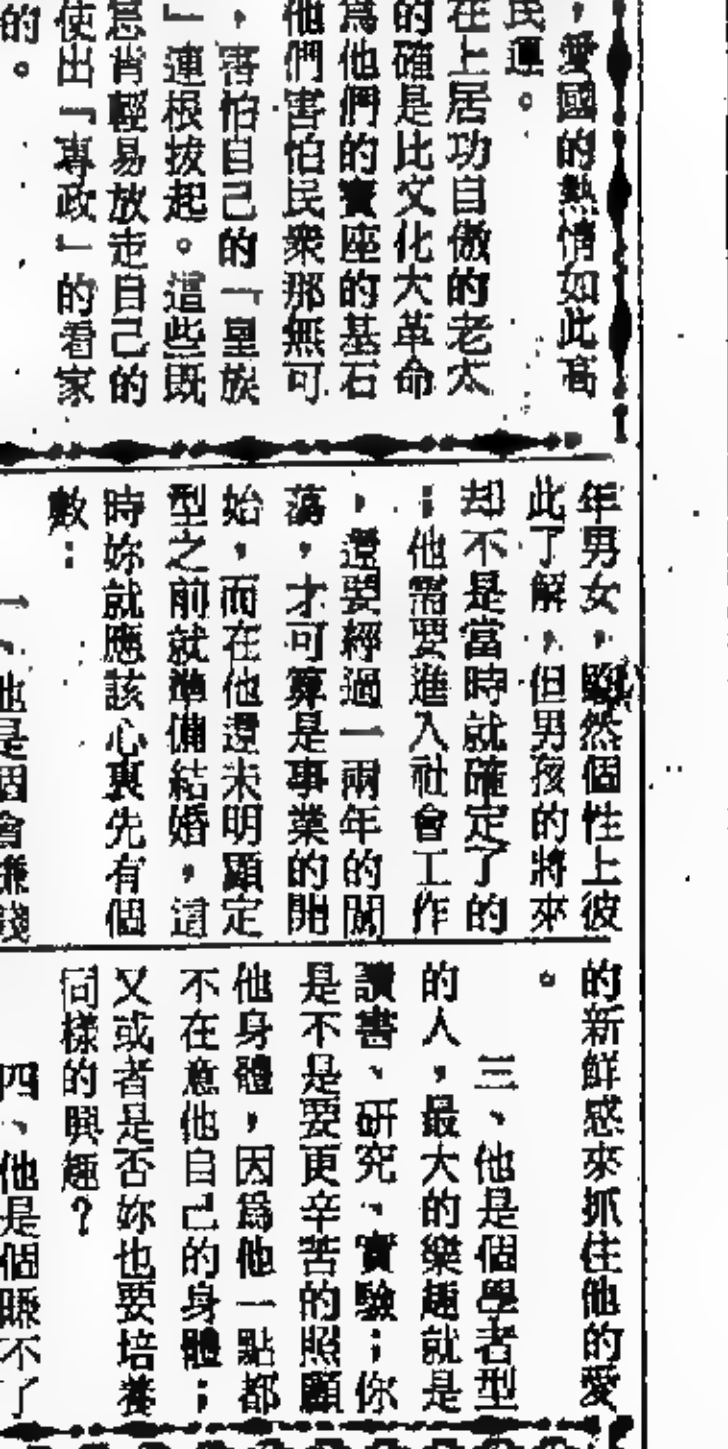 ，愛國的熱情如此高
民運。
在上居功自傲的老太
的確是比文化大革命
為他們的寶座的基石
他們害怕民衆那無可
，害怕自己的「皇族
」連根拔起。這些既
肯輕易放走自己的
使出「專政」的看家
的。
年男女，雖然個性上彼
此了解，但男孩的將來
却不是當時就確定了的
；他需要進入社會工作
，還要經過一兩年的闖
蕩，才可算是事業的開
始，而在他還未明顯定
型之前就準備結婚，這
時妳就應該心裏先有個
數：
一、他是個會賺錢
的新鮮感來抓住他的愛
。
三、他是個學者型
的人，最大的樂趣就是
讀書、研究、實驗；你
是不是要更辛苦的照顧
他身體，因為他一點都
不在意他自己的身體；
又或者是否妳也要培養
同樣的興趣？
四、他是個賺不了